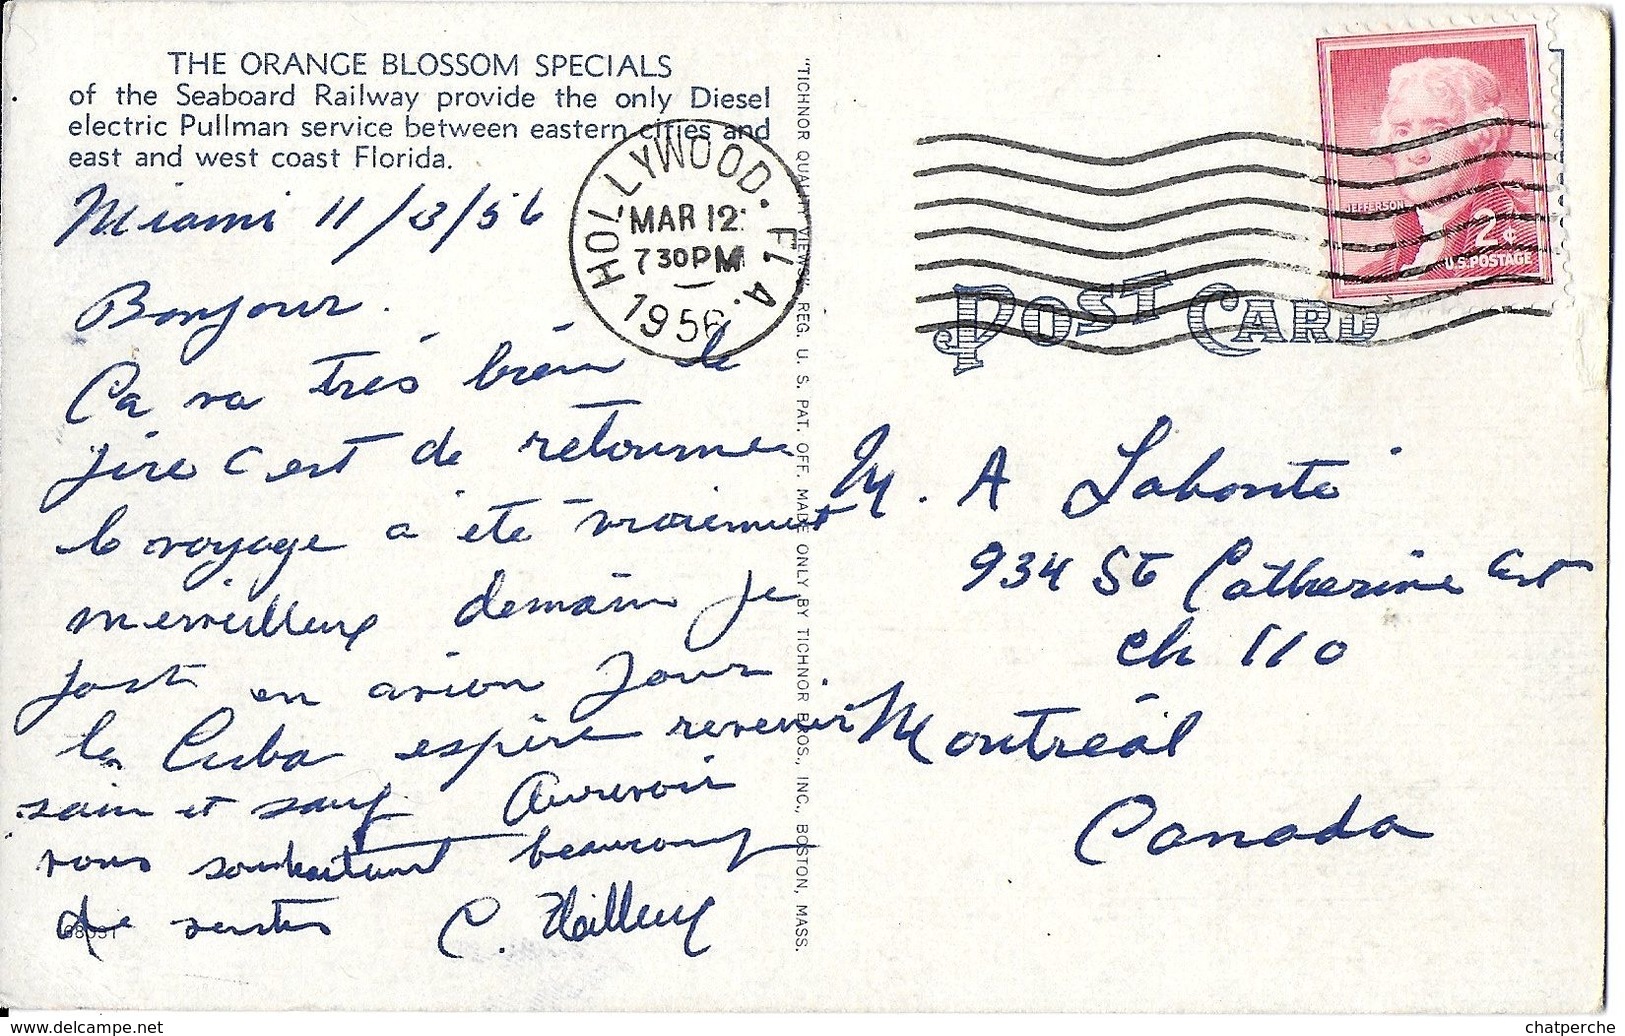 THE ORANGE BLOSSOM SPECIALS
of the Seaboard Railway provide the only Diesel
electric Pullman service between eastern cities and
east and west coast Florida.
Miami 11/3/56
Bonjour.
Ça va très bien le
pire c est de retourner
le voyage a été vraiement
merveilleux demain je
part en avion pour
la Cuba espère revenir
sain et sauf. Aurevoir
vous souhaitant beaucoup
de C.
68051
HOLLYWOOD. FLA.
MAR 12
730PM
1956
"TICHNOR QUALITY VIEWS," REG. U. S. PAT. OFF. MADE ONLY BY TICHNOR BROS., INC., BOSTON, MASS.
JEFFERSON
2¢
U.S. POSTAGE
POST CARD
M. A Labonté
934 St Catherine Est
ch 110
Montréal
Canada
www.delcampe.net
chatperche